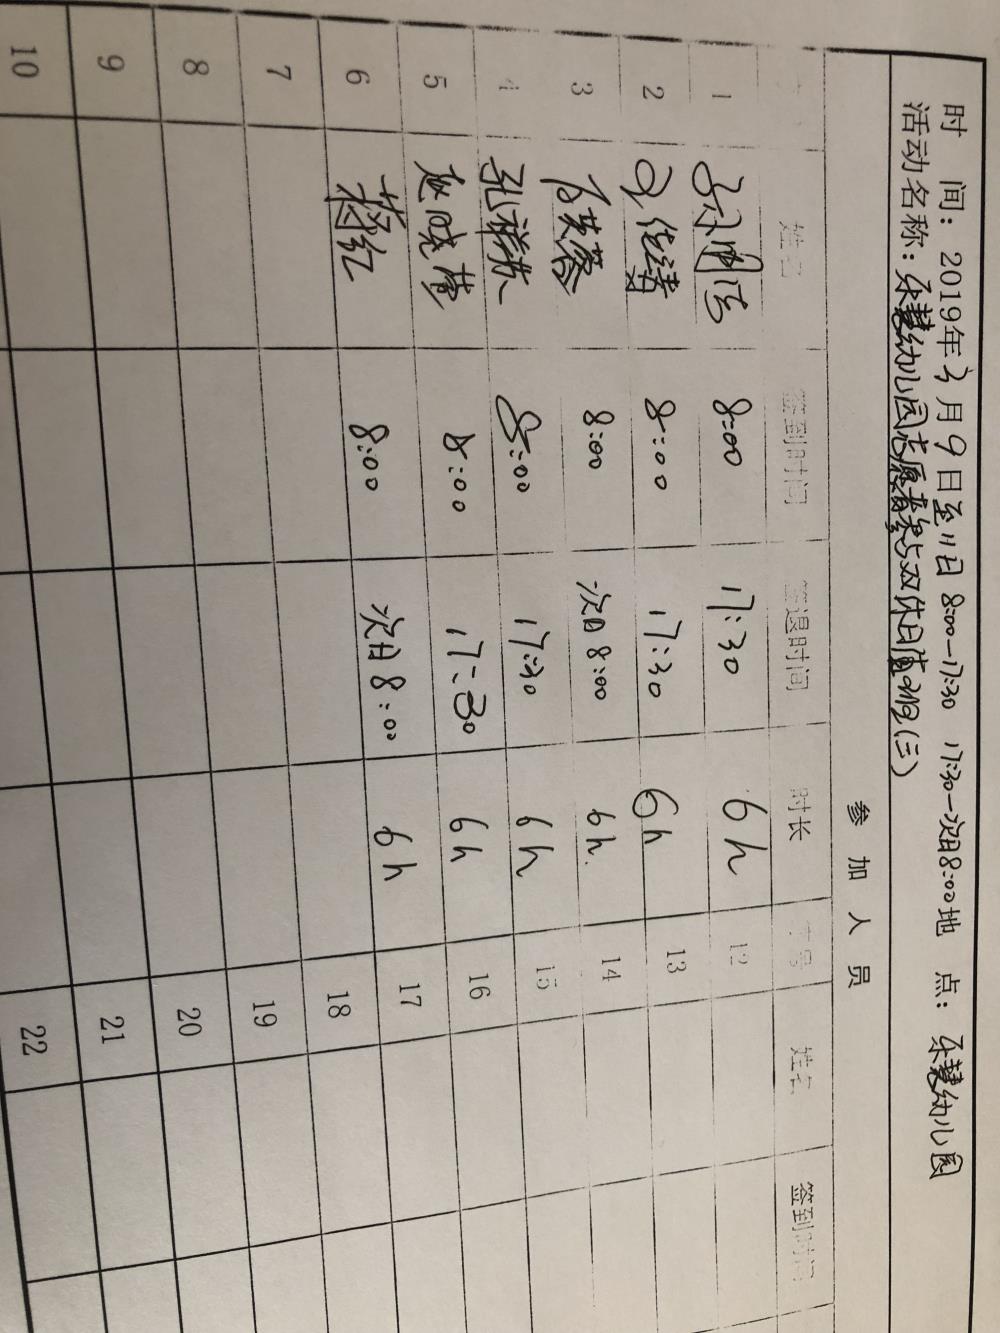 时 间: 2019年3月9日至11日 8:00-17:30 17:30-次日8:00 地 点: 乐慧幼儿园
活动名称: 乐慧幼儿园志愿者参与双休日值班(三)
参 加 人 员
姓名 签到时间 签退时间 时长 序号 姓名 签到时间
1 8:00 17:30 6h 12
2 8:00 17:30 6h 13
3 8:00 次日8:00 6h. 14
4 孔 8:00 17:30 6h 15
5 赵晓梦 8:00 17:30 6h 16
6 蒋红 8:00 次日8:00 6h 17
7 18
8 19
9 20
10 21
22